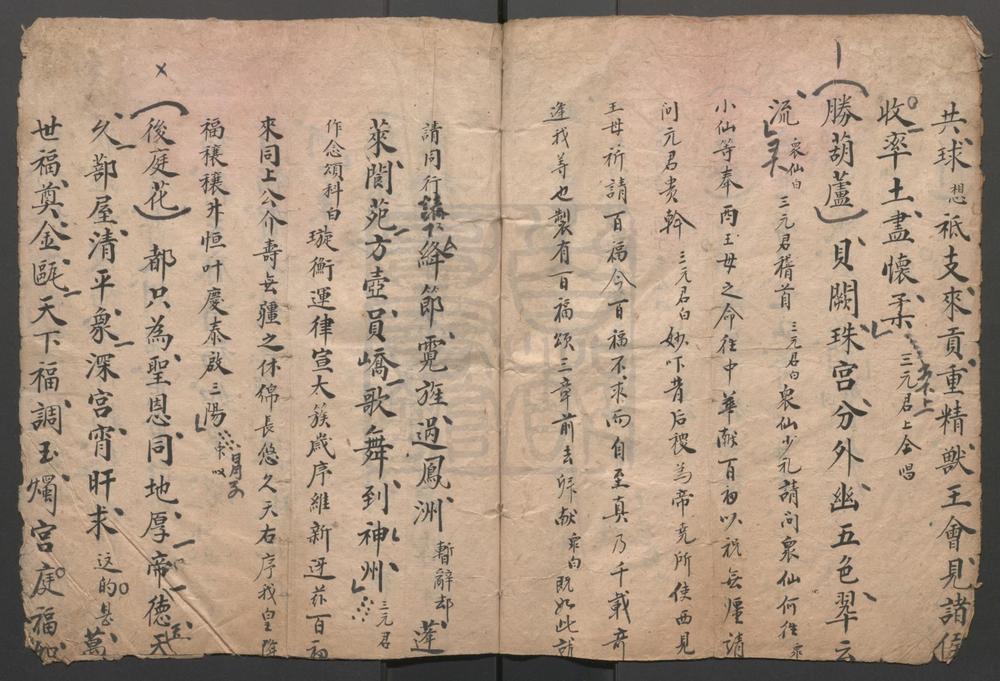 共球想祗支來貢重精獻王會見諸侯
收率土盡懷柔 三元君上仝唱
勝葫蘆 貝闕珠宮分外幽五色翠云
流 衆仙白 三元君稽首 三元君白 衆仙少礼請问衆仙何往 衆
小仙等奉西王母之命往中華献百福以祝無疆請
问元君贵幹 三元君白 妙吓昔后稷為帝尭所使西見
王母祈請百福今百福不求而自至真乃千載奇
逢我等也製有百福頌三章前去拜献 衆白 既如此就
請同行 絳節霓旌過鳳洲 暫辭却 蓬
萊閬苑方壺員嶠歌舞到神州 三元君
作念頌科白 璇衡運律宣太簇歲序維新迓茀百福
來同上公介壽無疆之休綿長悠久天右序我皇降
福穰穰升恒叶慶泰啟三陽
後庭花 都只為聖恩同地厚帝德天
久蔀屋清平象深宮宵旰求 这的是 萬
世福奠金甌天下福調玉燭宮庭福如